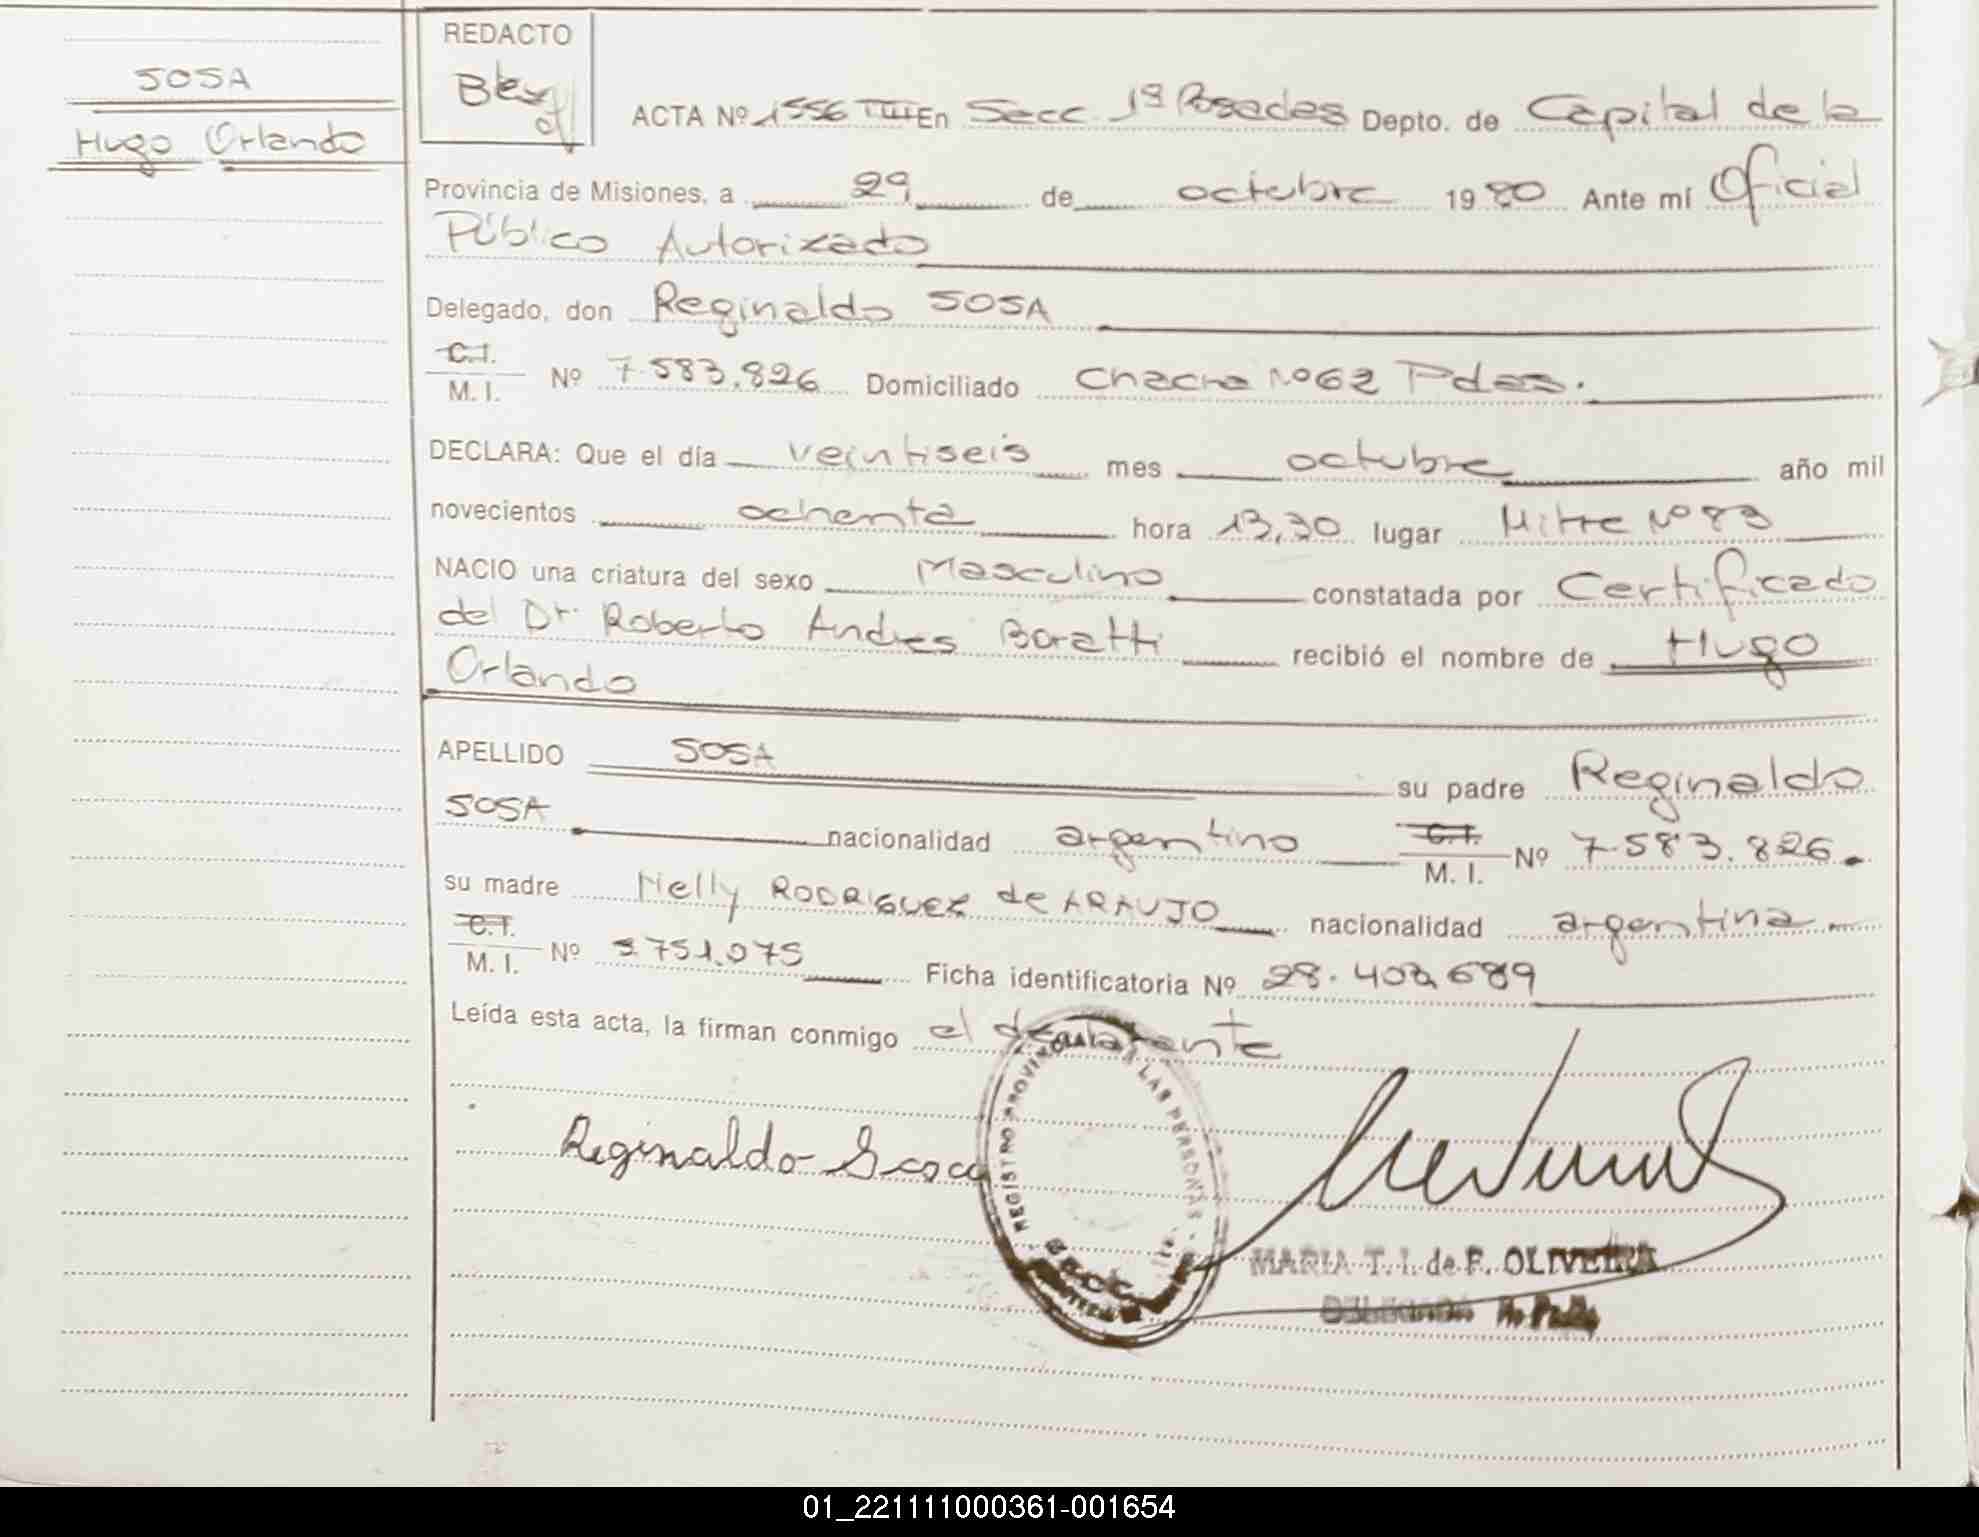 SOSA
Hugo Orlando
REDACTO
ACTA Nº 1556 TIII En Secc. 1ª Posadas Depto. de Capital de la
Provincia de Misiones, a 29 de octubre 1980 Ante mí Oficial
Público Autorizado
Delegado, don Reginaldo SOSA
C.I.
M. I. Nº 7.583.826 Domiciliado Chacra Nº 62 Pdas.
DECLARA: Que el día veintiseis mes octubre año mil
novecientos ochenta hora 13,30 lugar Mitre Nº 83
NACIO una criatura del sexo Masculino constatada por Certificado
del Dr. Roberto Andres Boratti recibió el nombre de Hugo
Orlando
APELLIDO SOSA su padre Reginaldo
SOSA nacionalidad argentino C.I.
M. I. Nº 7.583.826.
su madre Nelly RODRIGUEZ de ARAUJO nacionalidad argentina
C.I.
M. I. Nº Ficha identificatoria Nº
Leída esta acta, la firman conmigo el declarante
Reginaldo Sosa
REGISTRO PROVINCIAL LAS PERSONAS
SECC.
MARIA T. I. de F. OLIVEIRA
DELEGADA
01_221111000361-001654